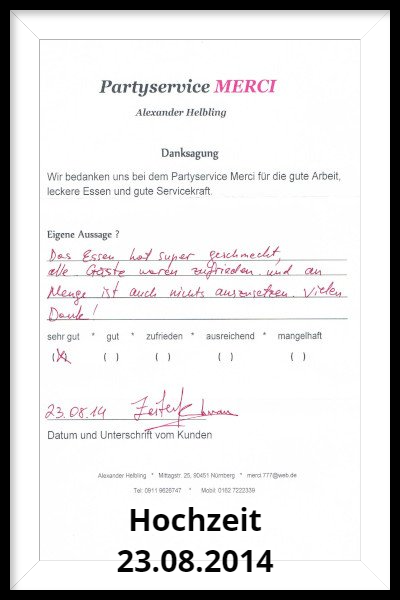 Partyservice MERCI
Alexander Helbling
Danksagung
Wir bedanken uns bei dem Partyservice Merci für die gute Arbeit,
leckere Essen und gute Servicekraft.
Eigene Aussage ?
Das Essen hat super geschmeckt,
alle Gäste waren zufrieden und an
Menge ist auch nichts auszusetzen. Vielen
Dank!
sehr gut * gut * zufrieden * ausreichend * mangelhaft
(X) ( ) ( ) ( ) ( )
23.08.14
Datum und Unterschrift vom Kunden
Alexander Helbling * Mittagstr. 25, 90451 Nürnberg * merci.777@web.de
Tel: 0911 9626747 * Mobil: 0162 7222339
Hochzeit
23.08.2014